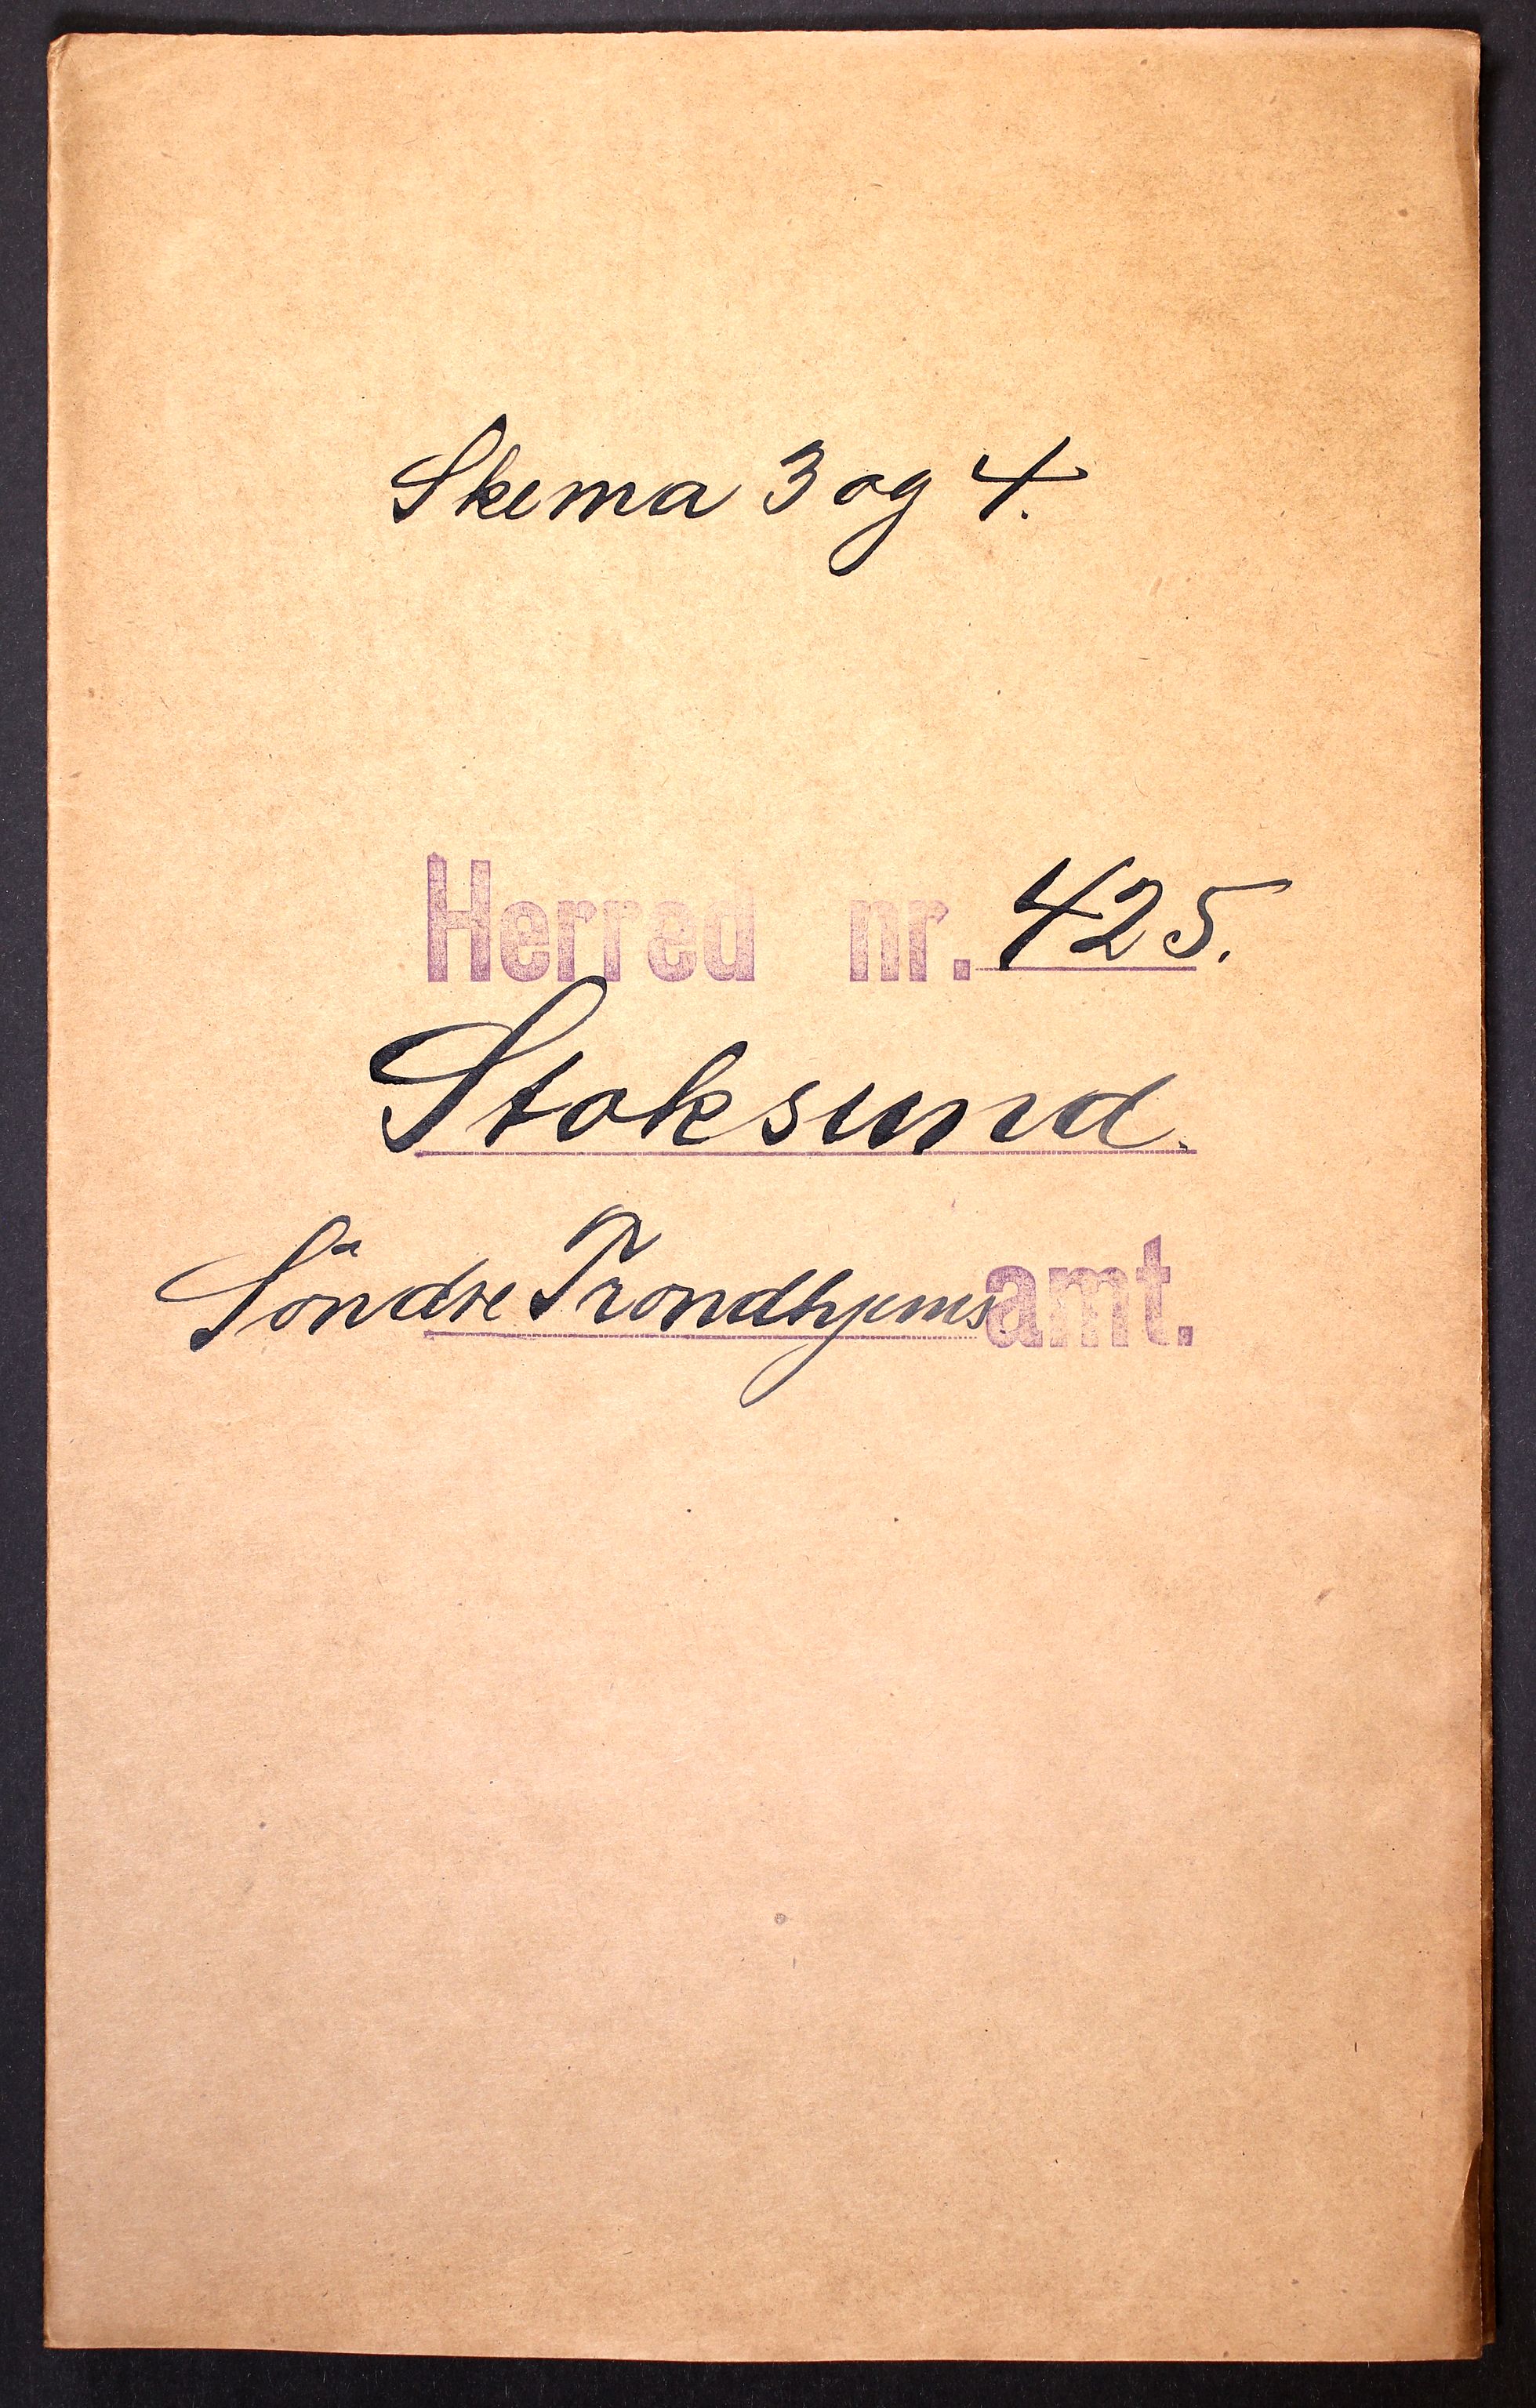 Skema 3 og 4.
Herred nr. 425.
Stoksund.
Söndre Trondhjems amt.